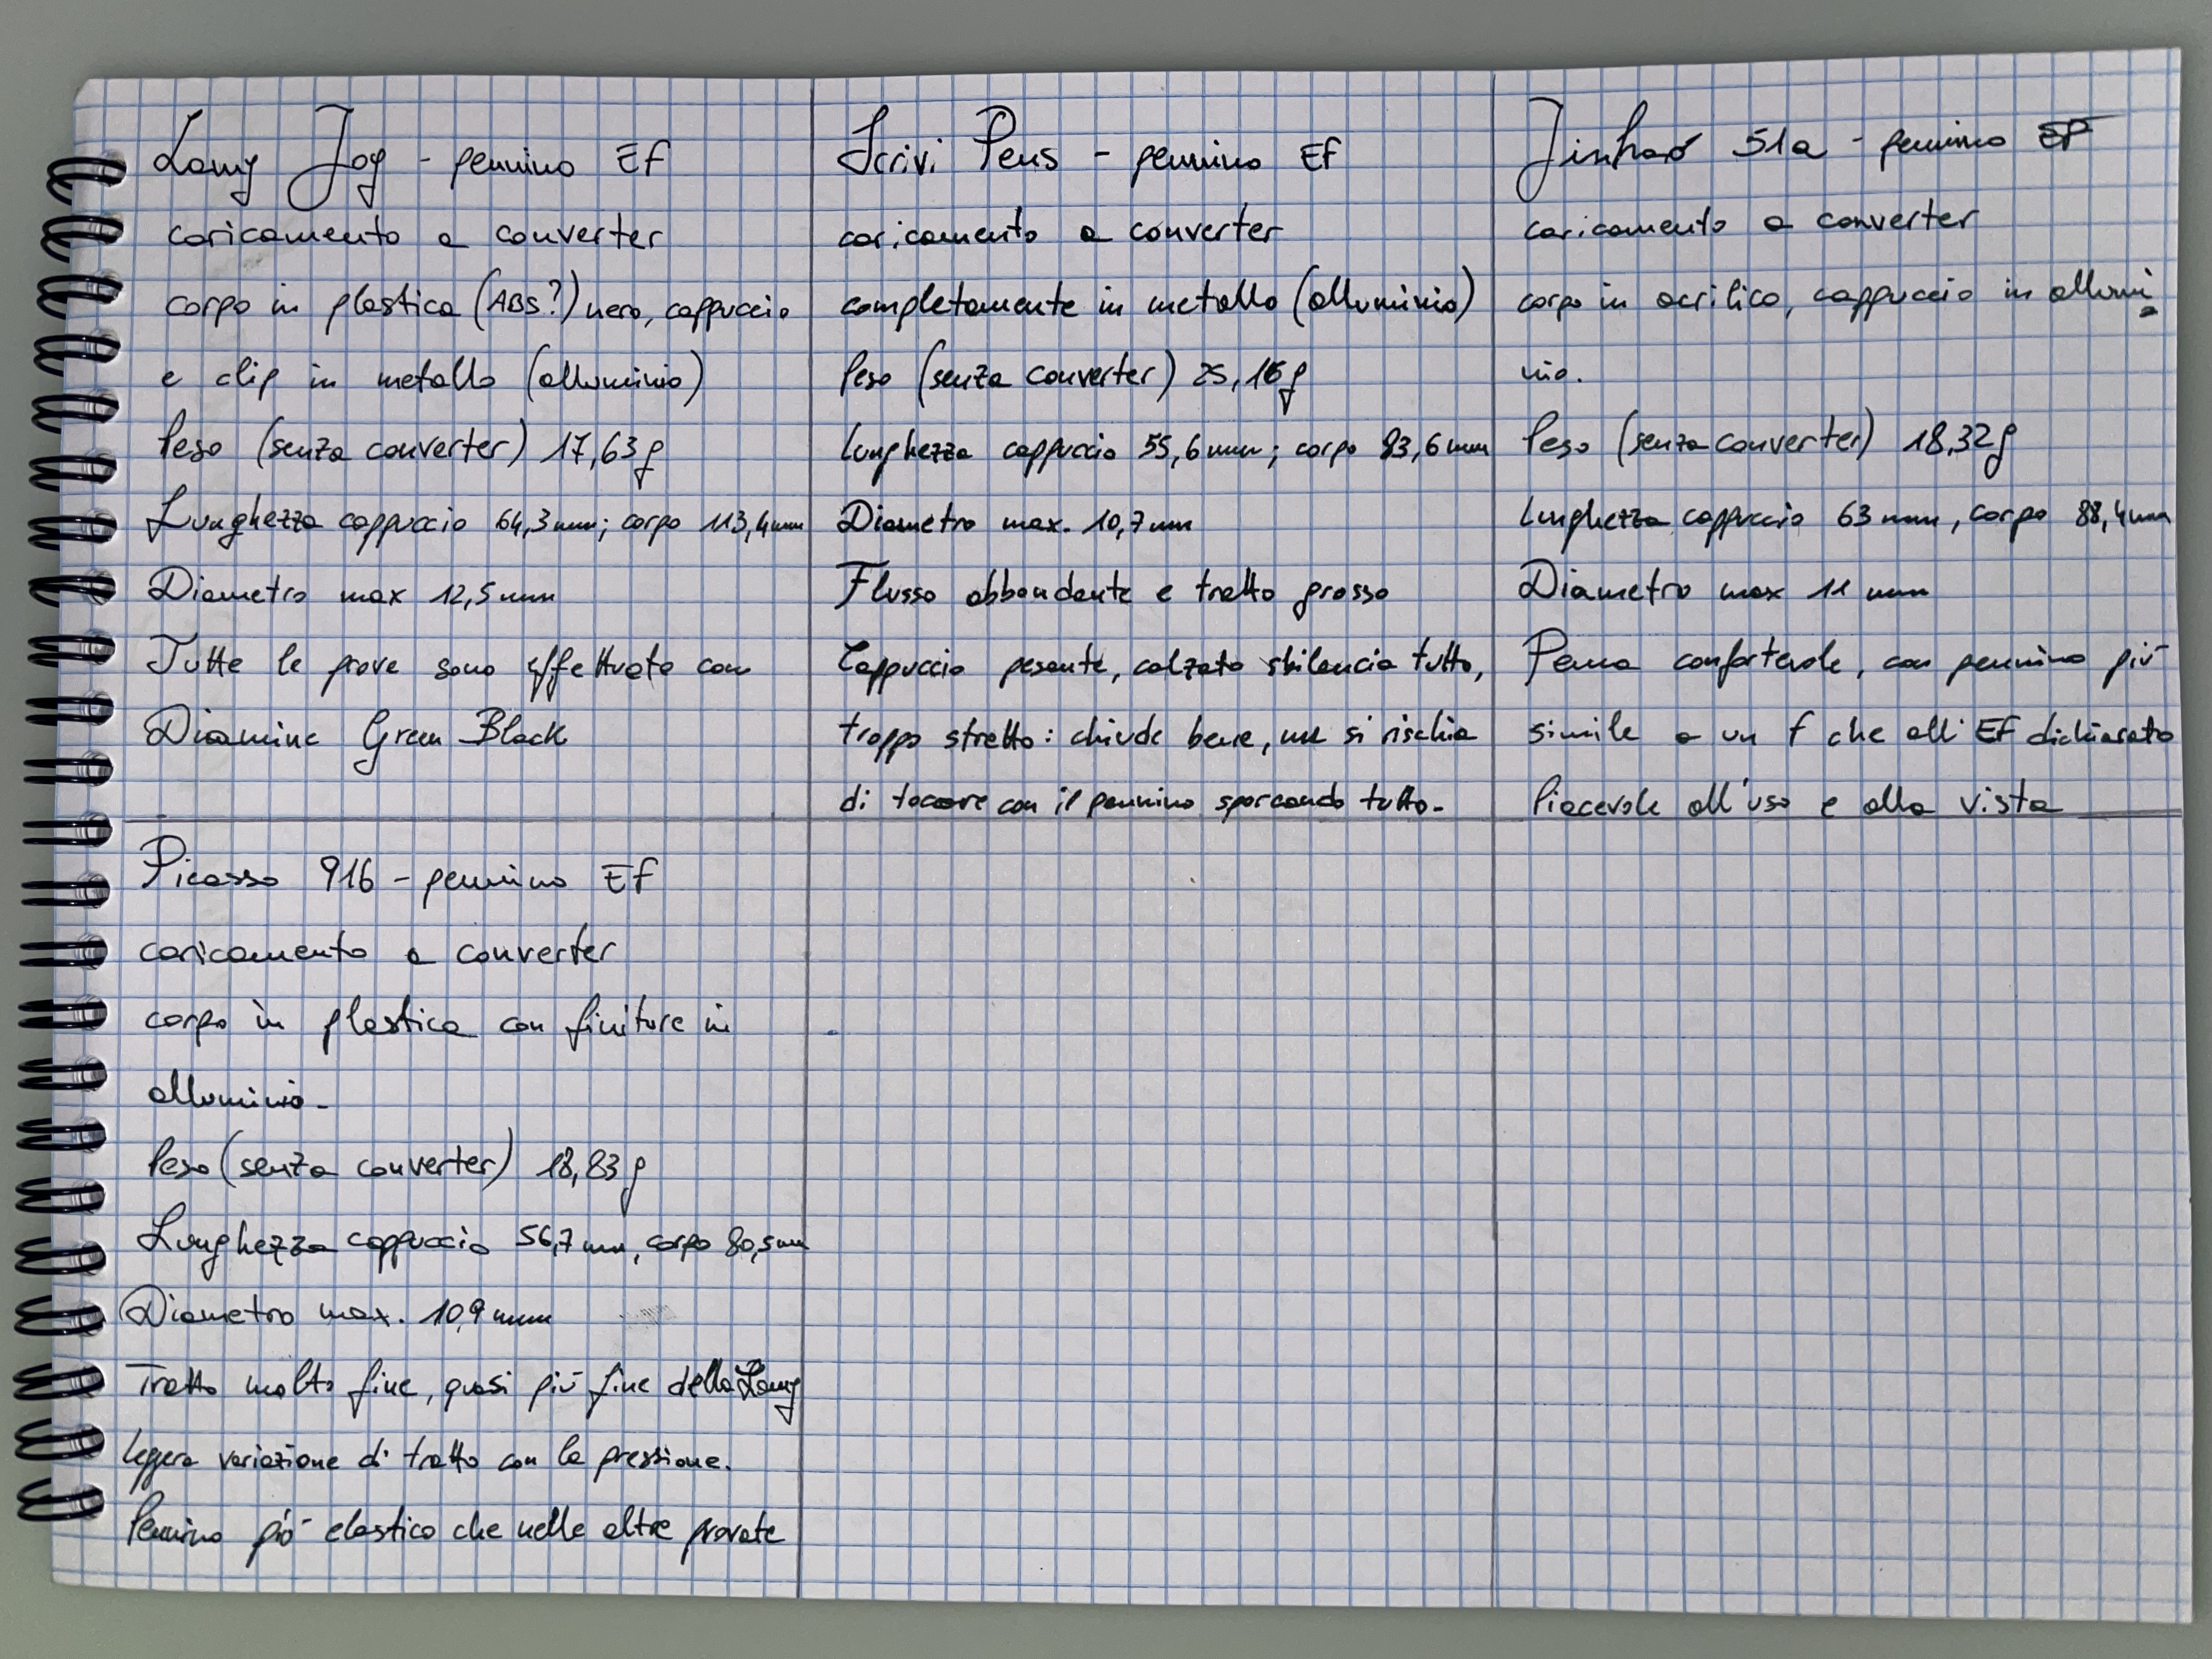 Lamy Joy - pennino EF
caricamento a converter
corpo in plastica (ABS?) nero, cappuccio
e clip in metallo (alluminio)
Peso (senza converter) 17,63g
Lunghezza cappuccio 64,3mm; corpo 113,4mm
Diametro max 12,5mm
Tutte le prove sono effettuate con
Diamine Green Black
Scrivi Pens - pennino EF
caricamento a converter
completamente in metallo (alluminio)
Peso (senza converter) 25,16g
lunghezza cappuccio 55,6mm; corpo 83,6mm
Diametro max. 10,7mm
Flusso abbondante e tratto grosso
Cappuccio pesante, calzato sbilancia tutto,
troppo stretto: chiude bene, ma si rischia
di toccare con il pennino sporcando tutto.
Jinhao 51a - pennino EF
caricamento a converter
corpo in acrilico, cappuccio in allumi
nio.
Peso (senza converter) 18,32g
lunghezza cappuccio 63mm, corpo 88,4mm
Diametro max 11 mm
Penna confortevole, con pennino più
simile a un F che all'EF dichiarato
Piacevole all'uso e alla vista
Picasso 916 - pennino EF
caricamento a converter
corpo in plastica con finiture in
alluminio.
Peso (senza converter) 18,83g
Lunghezza cappuccio 56,7mm, corpo 80,5mm
Diametro max. 10,9mm
Tratto molto fine, quasi più fine della Lamy
leggera variazione di tratto con la pressione.
Pennino più elastico che nelle altre provate